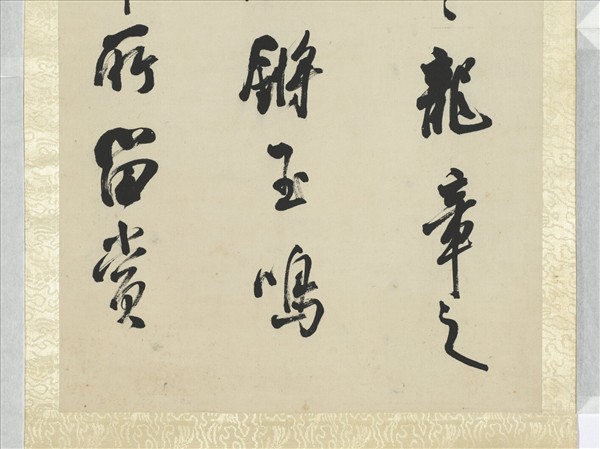 龍章之
鏘玉鳴
所留賞